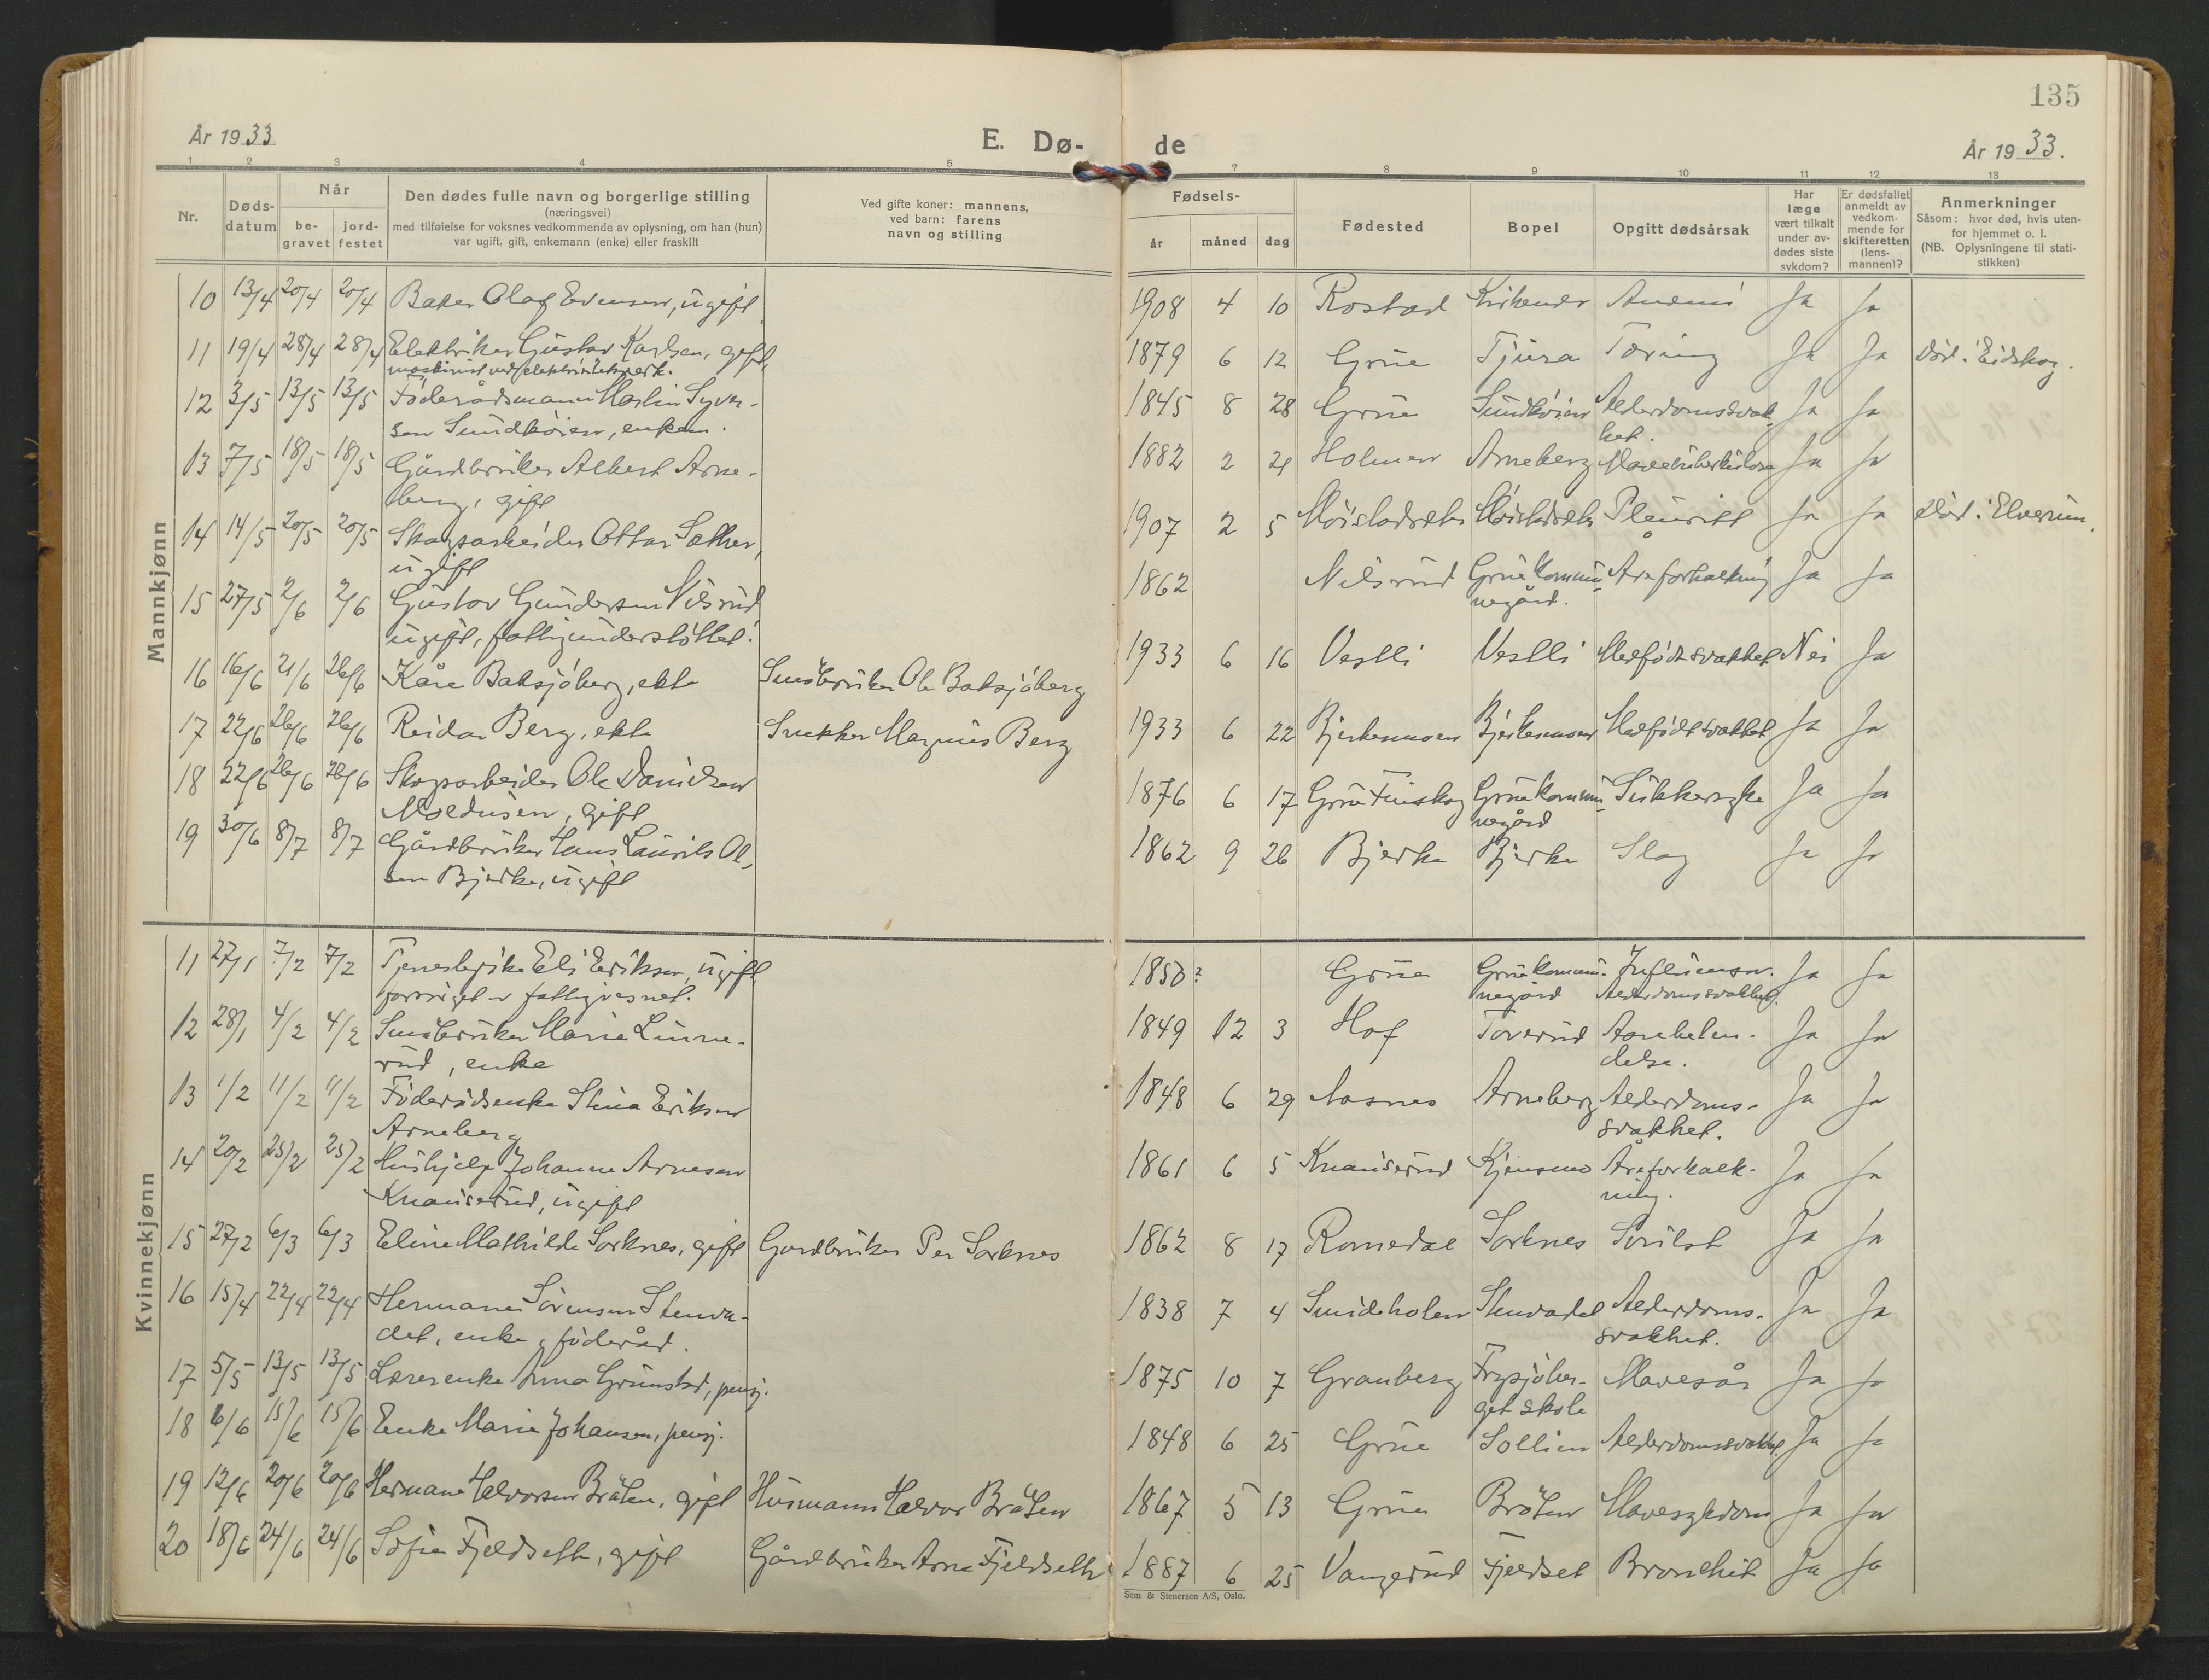 135
År 1933
E. Dø-
de
År 1933.
1 2 3 4 5 7 8 9 10 11 12 13
Nr.
Døds-
datum
Når
be-
gravet
jord-
festet
Den dødes fulle navn og borgerlige stilling
(næringsvei)
med tilføielse for voksnes vedkommende av oplysning, om han (hun)
var ugift, gift, enkemann (enke) eller fraskilt
Ved gifte koner: mannens,
ved barn: farens
navn og stilling
Fødsels-
år
måned
dag
Fødested
Bopel
Opgitt dødsårsak
Har
læge
vært tilkalt
under av-
dødes siste
sykdom?
Er dødsfallet
anmeldt av
vedkom-
mende for
skifteretten
(lens-
mannen)?
Anmerkninger
Såsom: hvor død, hvis uten-
for hjemmet o. l.
(NB. Oplysningene til stati-
stikken)
Mannkjønn
10 13/4 20/4 20/4 Baker Olaf Evensen, ugift 1908 4 10 Rostad Kirkenær Anemi Ja Ja
11 19/4 28/4 28/4 Elektriker Gustav Karlsen, gift, 1879 6 12 Grue Tjura Tæring Ja Ja Død i Eidskog.
maskinist ved elektrisitetsverk.
12 3/5 13/5 13/5 Føderådsmann Martin Syver- 1845 8 28 Grue Sundkøien Alderdomssvak- Ja Ja
sen Sundkøien, enkem. het.
13 7/5 18/5 18/5 Gårdbruker Albert Arne- 1882 2 21 Holmen Arneberg Mavetuberkulose Ja Ja
berg, gift
14 14/5 20/5 20/5 Skogsarbeider Ottar Sæther, 1907 2 5 Pleuritt Ja Ja Død i Elverum.
ugift
15 27/5 2/6 2/6 Gustav Gundersen Nilsrud 1862 Nilsrud Grue kommu- Åreforkalkning Ja Ja
ugift, fattigunderstøttet. negård.
16 16/6 21/6 26/6 Kåre Baksjøberg, ekte Småbruker Ole Baksjøberg 1933 6 16 Vestli Vestli Medfødt svakhet Nei Ja
17 22/6 26/6 26/6 Reidar Berg, ekte Snekker Magnus Berg 1933 6 22 Bjerkemoen Bjerkemoen Medfødt svakhet Ja Ja
18 22/6 26/6 26/6 Skogsarbeider Ole Danielsen 1876 6 17 Grue Finskog Grue kommu- Sukkersyke Ja Ja
Moldusen, gift negård
19 30/6 8/7 8/7 Gårdbruker Hans Laurits Ol- 1862 9 26 Bjerke Bjerke Slag Ja Ja
sen Bjerke, ugift
Kvinnekjønn
11 27/1 7/2 7/2 Tjenestepike Eli Eriksen, ugift 1850? Grue Grue kommu- Influensa. Ja Ja
forsørget av fattigvesnet. negård Alderdomssvakhet.
12 28/1 4/2 4/2 Småbruker Marie Linne- 1849 12 3 Hof Toverud Ja Ja
rud, enke delse.
13 1/2 11/2 11/2 Føderådsenke Stina Eriksen 1848 6 29 Aasnes Arneberg Alderdoms- Ja Ja
Arneberg svakhet.
14 20/2 25/2 25/2 Hushjelp Johanne Arnesen 1861 6 5 Knauserud Kjensmo Åreforkalk- Ja Ja
Knauserud, ugift ning.
15 27/2 6/3 6/3 Eline Mathilde Sorknes, gift Gardbruker Per Sorknes 1862 8 17 Romedal Sorknes Ja Ja
16 15/4 22/4 22/4 Hermane Sørensen Stenva- 1838 7 4 Smideholen Stenvadet Alderdoms- Ja Ja
det, enke, føderåd. svakhet.
17 5/5 13/5 13/5 Lærerenke Anna Grunstad, pensj. 1875 10 7 Granberg Frysjøber- Mavesår Ja Ja
get skole
18 6/6 15/6 15/6 Enke Marie Johansen, pensj. 1848 6 25 Grue Sollien Alderdomssvakhet Ja Ja
19 12/6 20/6 20/6 Hermane Halvorsen Bråten, gift Husmann Halvor Bråten 1867 5 13 Grue Bråten Mavesykdom Ja Ja
20 18/6 24/6 24/6 Sofie Fjeldseth, gift Gårdbruker Arne Fjeldseth 1887 6 25 Vangerud Fjeldset Bronchit Ja Ja
Sem & Stenersen A/S, Oslo.